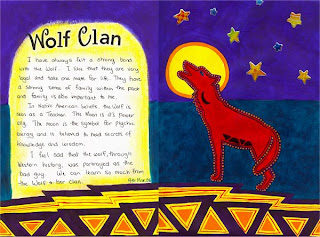 Wolf Clan
I have always felt a strong bond
with the Wolf. I like that they are very
loyal and take one mate for life. They have
a strong sense of family within the pack
and family is also important to me.
In Native American beliefs, the Wolf is
seen as a Teacher. The Moon is it's power
ally. The moon is the symbol for psychic
energy and is believed to hold secrets of
knowledge and wisdom.
I feel sad that the wolf, through
Western history, was portrayed as the
bad guy. We can learn so much from
the Wolf & her clan.